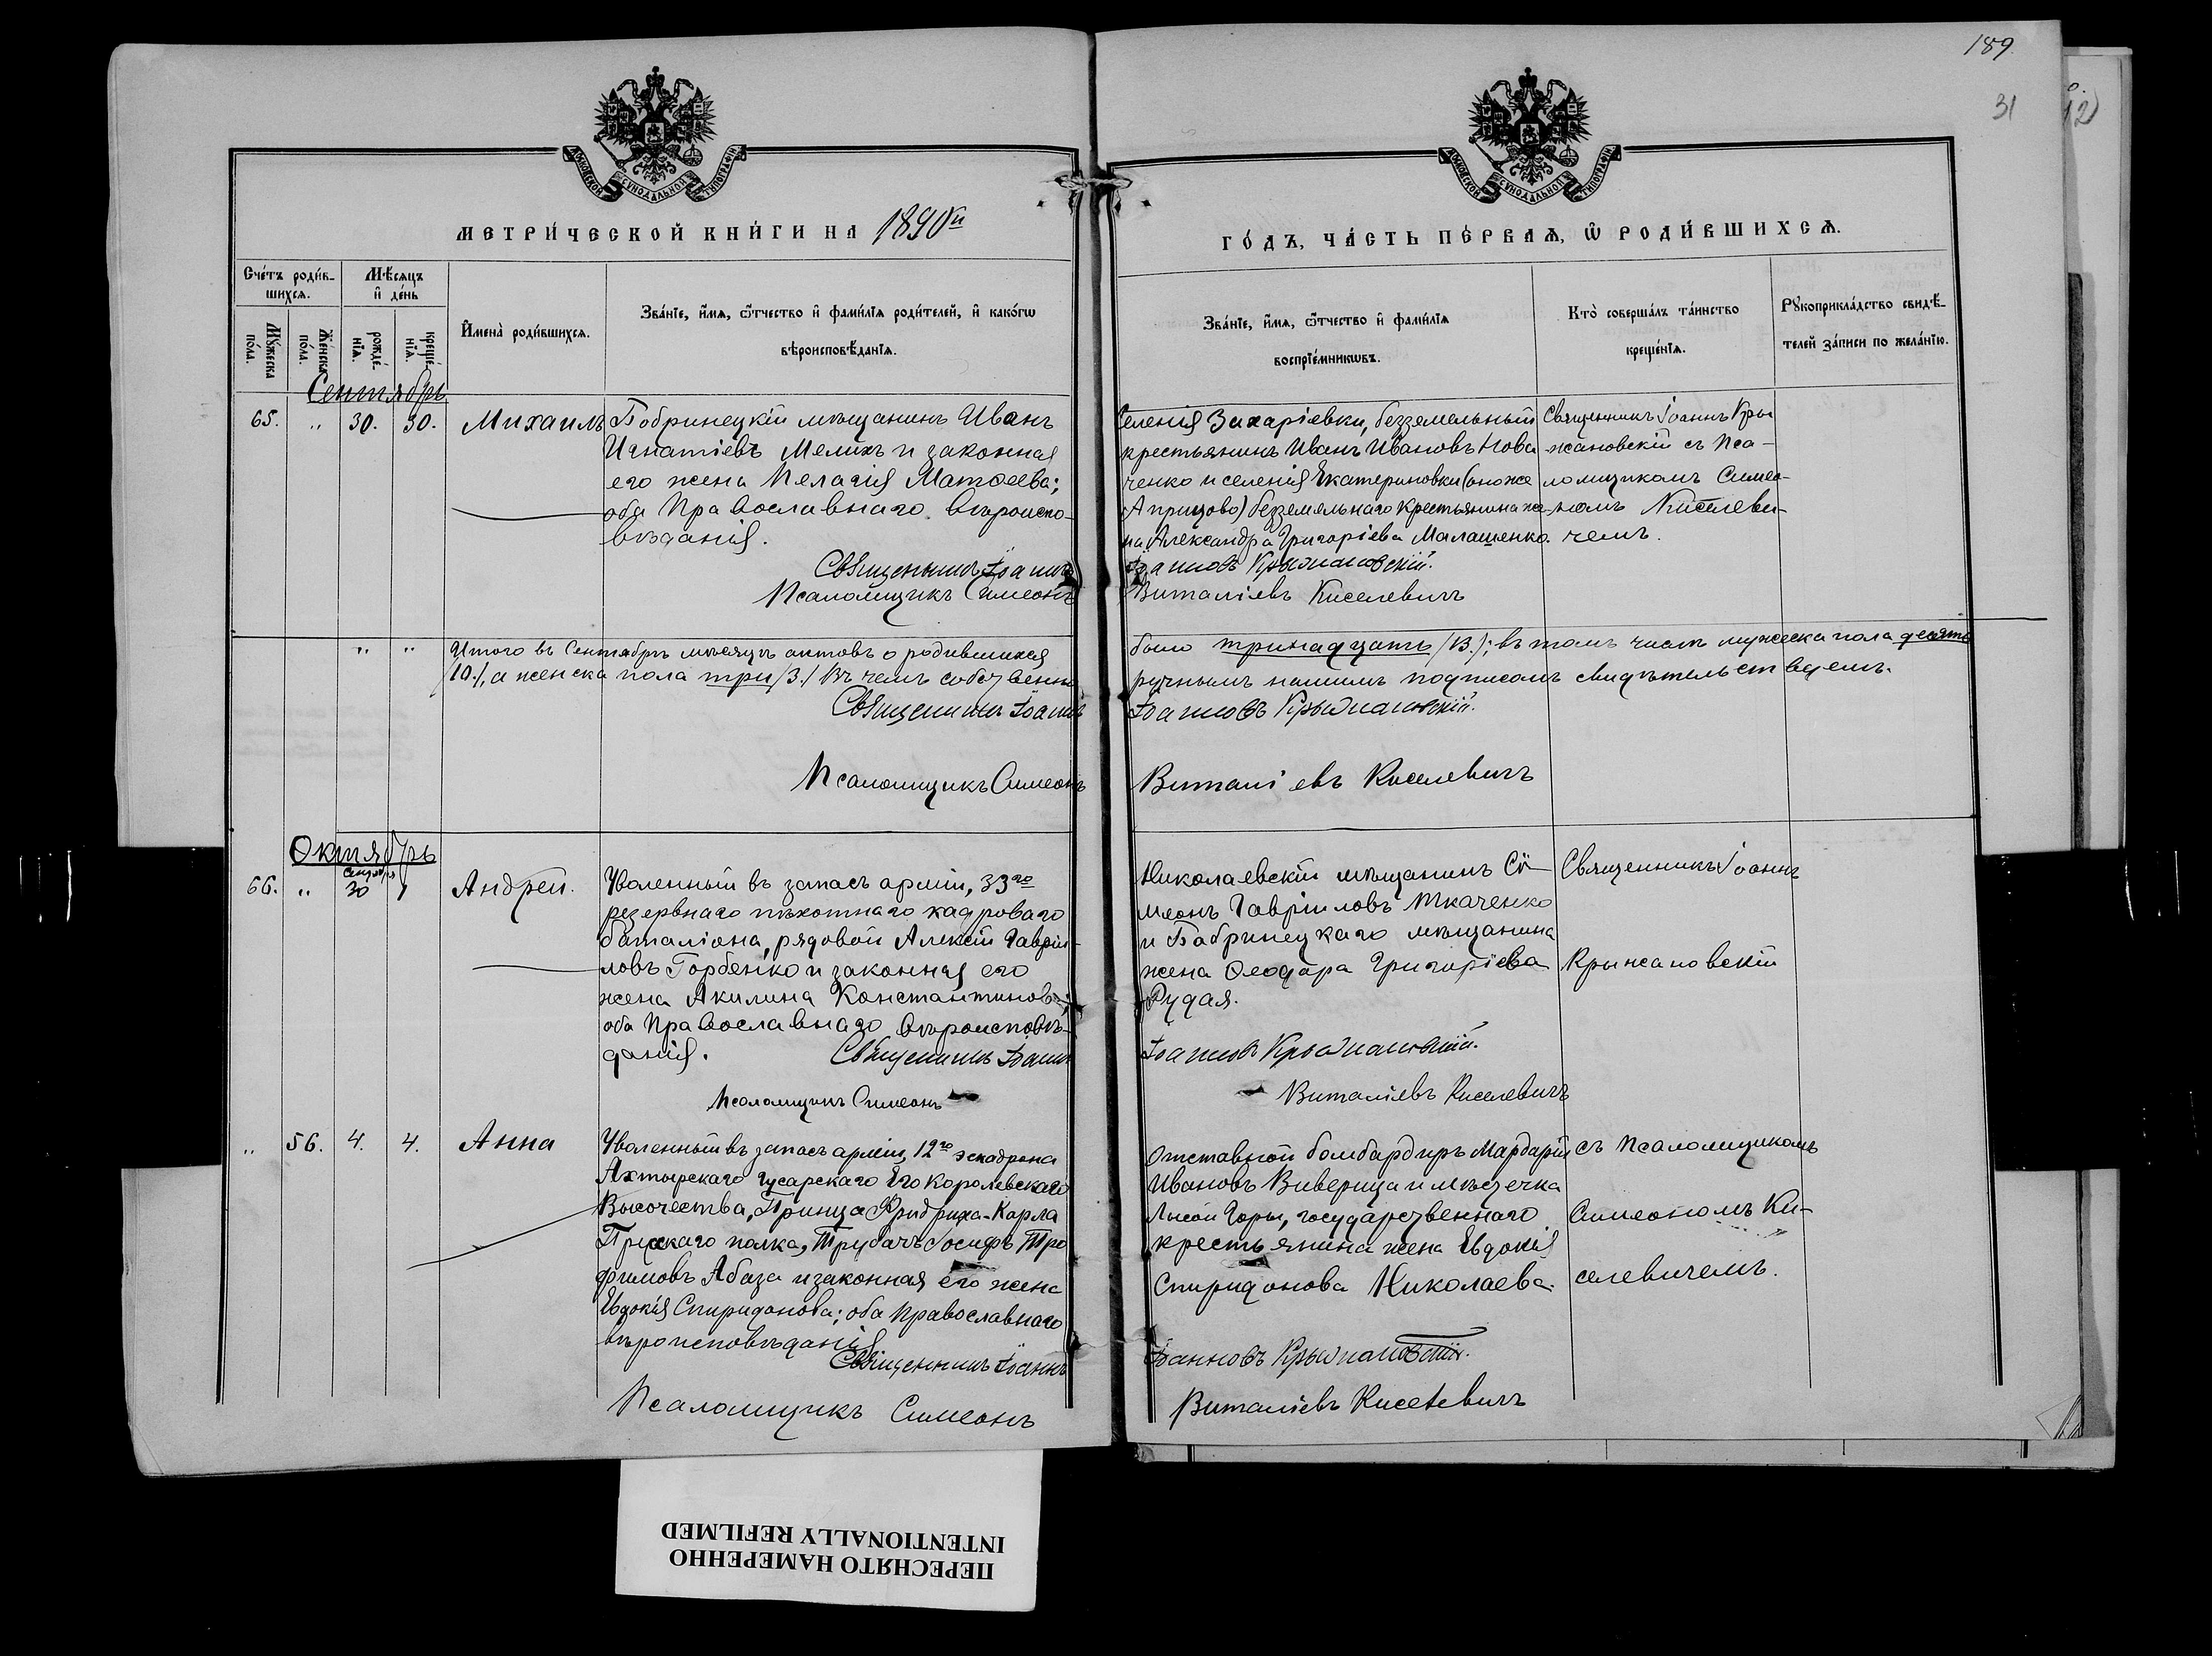 189
31
12
МОСКОВСКОЙ СѴНОДАЛЬНОЙ ТИПОГРАФІИ
МОСКОВСКОЙ СѴНОДАЛЬНОЙ ТИПОГРАФІИ
МЕТРИ́ЧЕСКОЙ КНИ́ГИ НА 1890й
ГО́ДЪ, ЧА́СТЬ ПЕ́РВАѦ, Ѡ РОДИ́ВШИХСѦ.
Сче́тъ роди́в-
шихсѧ.
Мѣ́сѧцъ
и҆ де́нь
Мꙋ́жеска по́ла.
Же́нска по́ла.
рожде́нїѧ.
креще́нїѧ.
И҆мена̀ роди́вшихсѧ.
Зва́нїе, и҆́мѧ, ѻ҆́тчество и҆ фами́лїѧ роди́телей, и҆ како́гѡ
вѣроисповѣ́данїѧ.
Зва́нїе, и҆́мѧ, ѻ҆́тчество и҆ фами́лїѧ
воспрїе́мникѡвъ.
Кто̀ соверша́лъ та́инство
креще́нїѧ.
Рꙋкоприкла́дство свидѣ́-
телей за́писи по жела́нїю.
Сентябрь
65. " 30. 30. Михаилъ
Бобринецкій мѣщанинъ Иванъ
Игнатіевъ Мелихъ и законная
его жена Пелагія Матѳеева;
оба Православнаго вѣроиспо-
вѣданія.
Священникъ Іоаннъ
Псаломщикъ Симеонъ
Селенія Захаріевки, безземельный
крестьянинъ Иванъ Ивановъ Нова
ченко и селенія Екатериновки (оно же
Априцово) безземельнаго крестьянина же-
на Александра Григоріева Малашенко.
Іоанновъ Крыжановскій.
Виталіевъ Киселевичъ
Священникъ Іоаннъ Кры
жановскій съ Пса-
ломщикомъ Симео-
номъ Киселеви-
чемъ.
" " Итого въ Сентябрѣ мѣсяцѣ актовъ о родившихся
/10./, а женска пола три /3./ Въ чемъ собственно
Священникъ Іоаннъ
Псаломщикъ Симеонъ
было тринадцать /13./; въ томъ числѣ мужеска пола десять
ручнымъ нашимъ подписомъ свидѣтельствуемъ.
Іоанновъ Крыжановскій.
Виталіевъ Киселевичъ
Октябрь
Сентября
66. " 30 1 Андрей.
Уволенный въ запасъ арміи, 33го
резервнаго пѣхотнаго кадроваго
баталіона, рядовой Алексій Гавріи-
ловъ Горбенко и законная его
жена Акилина Константинова;
оба Православнаго вѣроисповѣ-
данія. Священникъ Іоаннъ
Псаломщикъ Симеонъ
Николаевскій мѣщанинъ Си-
меонъ Гавріиловъ Ткаченко
и Бобринецкаго мѣщанина
жена Ѳеодора Григоріева
Рудая.
Іоанновъ Крыжановскій.
Виталіевъ Киселевичъ
Священникъ Іоаннъ
Крыжановскій
" 56. 4. 4. Анна
Уволенный въ запасъ арміи, 12го эскадрона
Ахтырскаго Гусарскаго Его Королевскаго
Высочества, Принца Фридриха-Карла
Прускаго полка, Трубачъ Іосифъ Тро
фимовъ Абаза и законная его жена
Евдокія Спиридонова; оба Православнаго
вѣроисповѣданія
Священникъ Іоаннъ
Псаломщикъ Симеонъ
Отставной бомбардиръ Мардарій
Ивановъ Виверица и мѣстечка
Лысой Горы, государственнаго
крестьянина жена Евдокія
Спиридонова Николаева.
Іоанновъ Крыжановскій.
Виталіевъ Киселевичъ
съ Псаломщикомъ
Симеономъ Ки-
селевичемъ.
ПЕРЕСНЯТО НАМЕРЕННО
INTENTIONALLY REFILMED